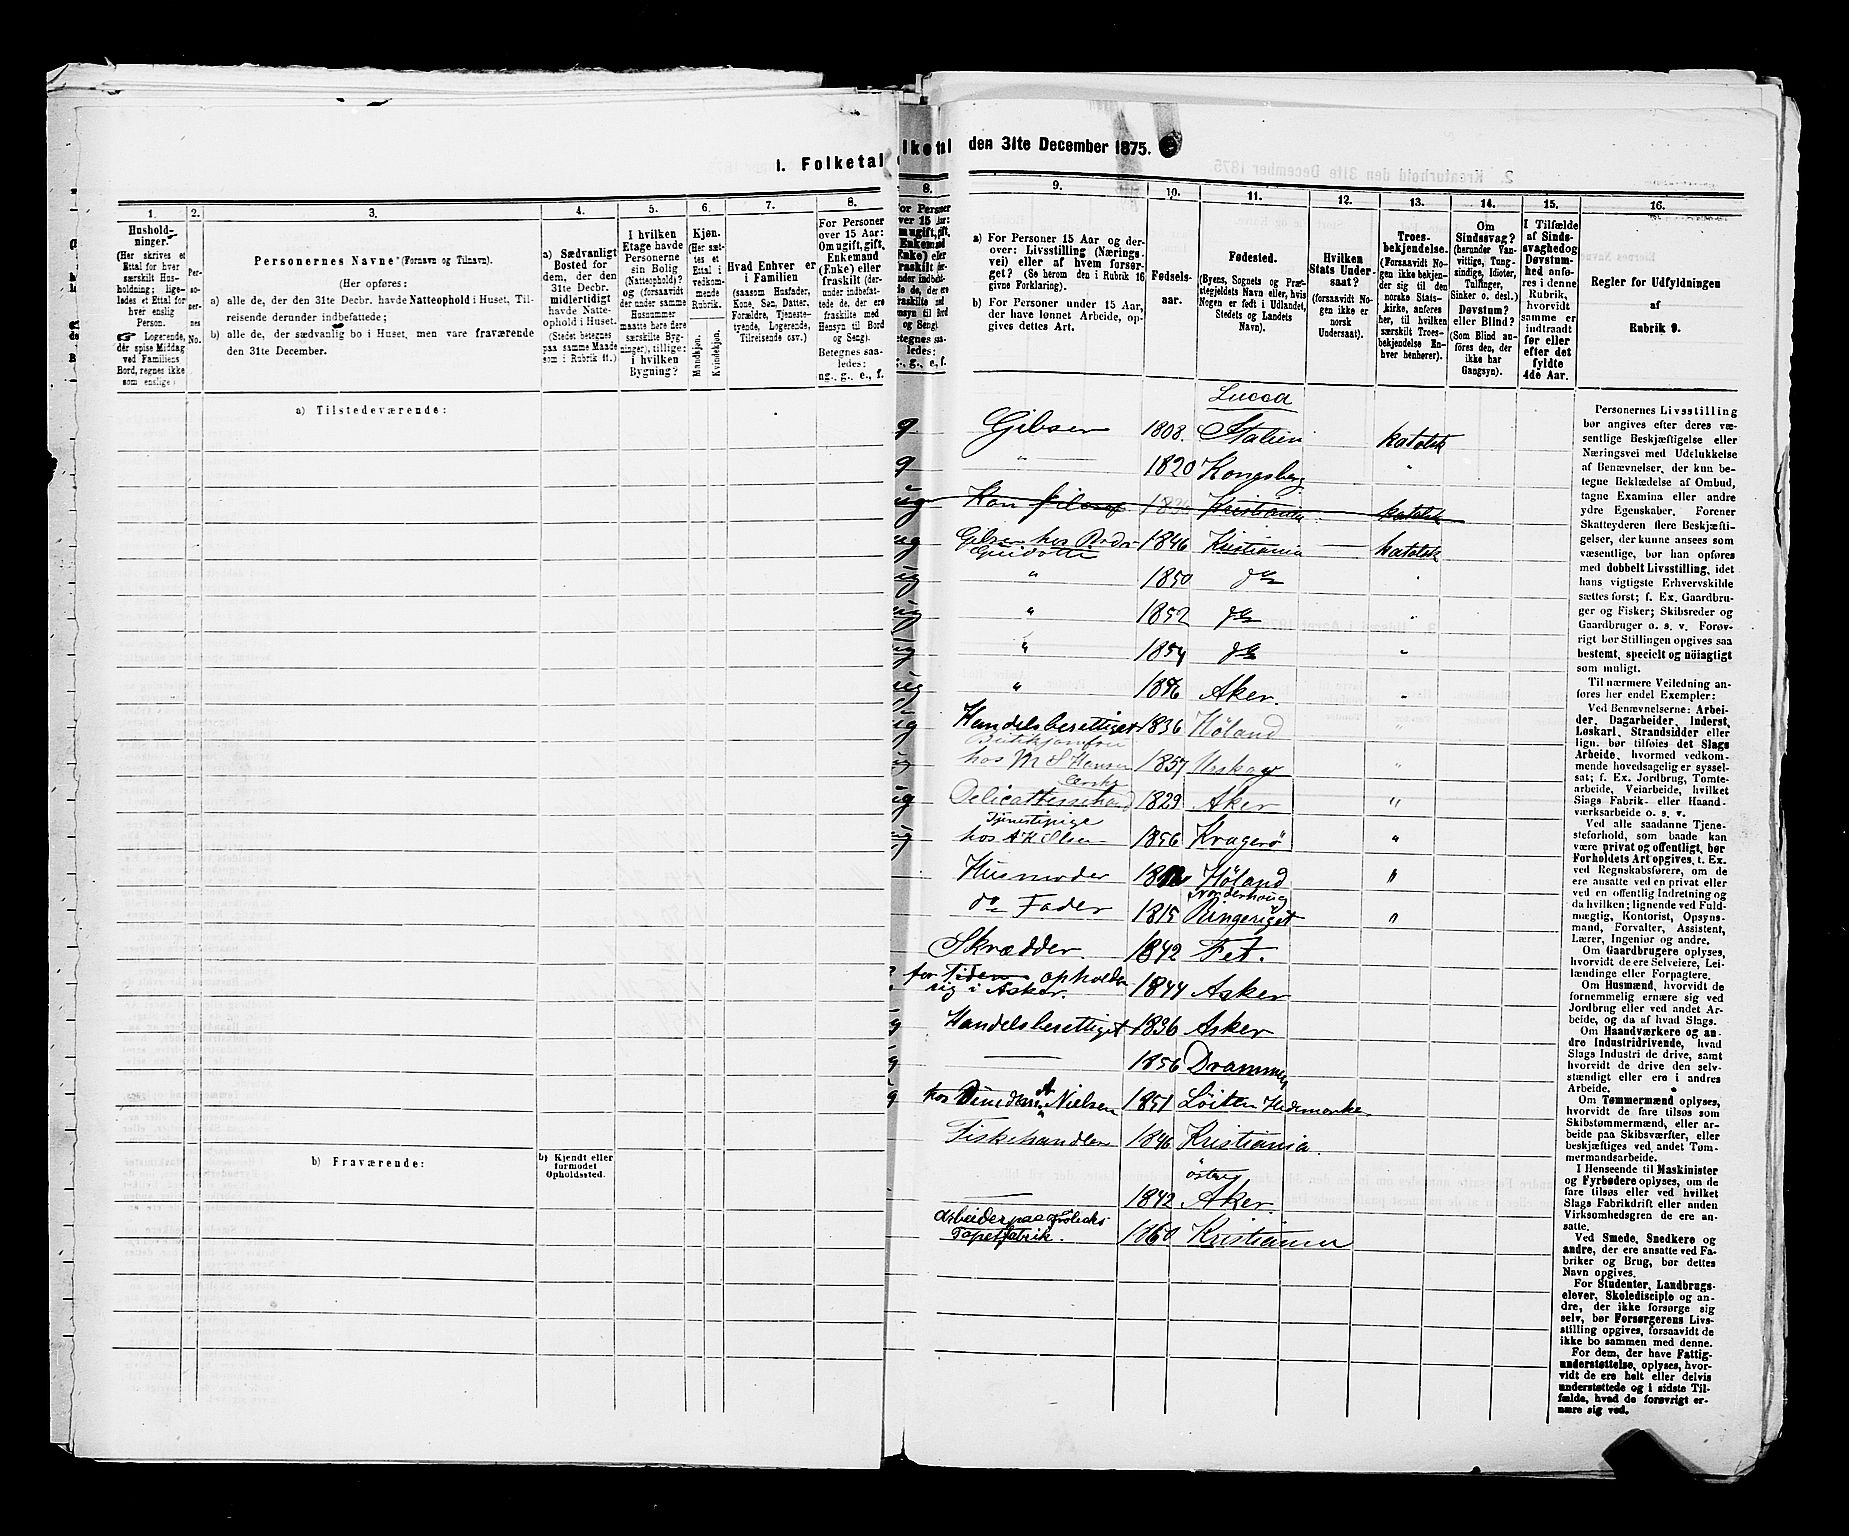 1. Folketal
1.
2.
3.
4.
5.
6.
7.
8.
Hushold-
ninger.
(Her skrives et
Ettal for hver
særskilt Hus-
holdning; lige-
ledes et Ettal for
hver enslig
Person.
Logerende,
der spise Middag
ved Familiens
Bord, regnes ikke
som enslige)
Per-
so-
ner-
nes
No.
Personernes Navne (Fornavn og Tilnavn).
(Her opføres:
a) alle de, der den 31te Decbr. havde Natteophold i Huset, Til-
reisende derunder indbefattede;
b) alle de, der sædvanlig bo i Huset, men vare fraværende
den 31te December.
a) Sædvanligt
Bosted for
dem, der den
31te Decbr.
midlertidigt
havde Natte-
ophold i Huset.
(Stedet betegnes
paa samme Maade
som i Rubrik 11.)
I hvilken
Etage havde
Personerne
sin Bolig
(Natteophold)?
og (forsaavidt
der under samme
Husnummer
maatte høre flere
særskilte Byg-
ninger), tillige:
i hvilken
Bygning?
Kjøn.
(Her sæt-
tes et
Ettal i
vedkom-
mende
Rubrik.
Mandkjøn.
Kvindekjøn.
Hvad Enhver er
i Familien
(saasom Husfader,
Kone, Søn, Datter,
Forældre, Tjeneste-
tyende, Logerende,
Tilreisende osv.)
For Personer
over 15 Aar:
Om ugift, gift,
Enkemand
(Enke) eller
fraskilt (der-
under indbefat-
tede de, der ere
fraskilte med
Hensyn til Bord
og Seng).
Betegnes saa-
ledes:
ug., g., e., f.
a) Tilstedeværende:
b) Fraværende:
b) Kjendt eller
formodet
Opholdssted.
den 31te December 1875.
9.
10.
11.
12.
13.
14.
15.
16.
a) For Personer 15 Aar og der-
over: Livsstilling (Nærings-
vei) eller af hvem forsør-
get? (Se herom den i Rubrik 16
givne Forklaring).
b) For Personer under 15 Aar,
der have lønnet Arbeide, op-
gives dettes Art.
Fødsels-
aar.
Fødested.
(Byens, Sognets og Præ-
stegjeldets Navn eller, hvis
Nogen er født i Udlandet,
Stedets og Landets
Navn).
Hvilken
Stats Under-
saat?
(forsaavidt No-
gen ikke er
norsk
Undersaat).
Troes-
bekjendelse.
(Forsaavidt No-
gen ikke bekjen-
der sig til den
norske Stats-
kirke, anføres
her, til hvilken
særskilt Troes-
bekjendelse En-
hver henhører).
Om
Sindssvag?
(herunder Van-
vittige, Tung-
sindige, Idioter,
Tullinger,
Sinker o. desl.)
Døvstum?
eller Blind?
(Som Blind an-
føres den, der
ikke har
Gangsyn).
I Tilfælde
af Sinds-
svaghed og
Døvstum-
hed anfø-
res i denne
Rubrik,
hvorvidt
samme er
indtraadt
før eller
efter det
fyldte
4de Aar.
Regler for Udfyldningen
af
Rubrik 9.
Lucca
g Gibser 1808. Italien katolsk
g " 1820 Kongsberg "
ug Kristiania katolsk
ug Gibser hos Guidotti 1846 Kristiania katolsk
ug " 1850 do
ug " 1852 do "
ug " 1854 do "
ug " Aker. "
ug Handelsberettiget 1836 Høland "
Butikjomfru
ug hos M S Hansen 1857 Urskog "
ug 1829 Aker "
Tjenestepige
ug hos A H Olsen 1856 Kragerø "
Husmoder Høland "
Norderhoug
do Fader 1815 Ringeriget "
Skrædder. 1842 Fet.
for Tiden opholder
sig i Asker. 1844 Asker
g Handelsberettiget 1836 Asker
g 1856 Drammen
g hos Nielsen 1851 Löiten Hedemarken
Fiskehandler 1846 Kristiania.
östre
1842 Aker.
Arbeider paa
Tapetfabrik. 1860 Kristiania
Personernes Livsstilling
bør angives efter deres væ-
sentlige Beskjæftigelse eller
Næringsvei med Udelukkelse
af Benævnelser, der kun be-
tegne Beklædelse af Ombud,
tagne Examina eller andre
ydre Egenskaber. Forener
Skatteyderen flere Beskjæfti-
gelser, der kunne ansees som
væsentlige, bør han opføres
med dobbelt Livsstilling, idet
hans vigtigste Erhvervskilde
sættes først; f. Ex. Gaardbru-
ger og Fisker; Skibsreder og
Gaardbruger o. s. v. Forøv-
rigt bør Stillingen opgives saa
bestemt, specielt og nöiagtigt
som muligt.
Til nærmere Veiledning an-
føres her endel Exempler:
Ved Benævnelserne: Arbei-
der, Dagarbeider, Inderst,
Løskarl, Strandsidder eller
lign. bør tilføies det Slags
Arbeide, hvormed vedkom-
mende hovedsagelig er syssel-
sat; f. Ex. Jordbrug, Tomte-
arbeide, Veiarbeide, hvilket
Slags Fabrik- eller Haand-
værksarbeide o. s. v.
Ved alle saadanne Tjene-
steforhold, som baade kan
være privat og offentligt, bør
Forholdets Art opgives, t. Ex.
ved Regnskabsførere, om de
ere ansatte ved en privat eller
ved en offentlig Indretning og
da hvilken; lignende ved Fuld-
mægtig, Kontorist, Opsyns-
mand, Forvalter, Assistent,
Lærer, Ingeniør og andre.
Om Gaardbrugere oplyses,
hvorvidt de ere Selveiere, Lei-
lændinge eller Forpagtere.
Om Husmænd, hvorvidt de
fornemmelig ernære sig ved
Jordbrug eller ved andet Ar-
beide, og da af hvad Slags.
Om Haandværkere og an-
dre Industridrivende, hvad
Slags Industri de drive, samt
hvorvidt de drive den selv-
stændigt eller ere i andres
Arbeide.
Om Tømmermænd oplyses,
hvorvidt de fare tilsøs som
Skibstømmermænd, eller ar-
beide paa Skibsværfter, eller
beskjæftiges ved andet Tøm-
mermandsarbeide.
I Henseende til Maskinister
og Fyrbødere oplyses, om de
fare tilsøs eller ved hvilket
Slags Fabrikdrift eller anden
Virksomhedsgren de ere an-
satte.
Ved Smede, Snedkere og
andre, der ere ansatte ved Fa-
briker og Brug, bør dettes
Navn opgives.
For Studenter, Landbrugs-
elever, Skoledisciple og an-
dre, der ikke forsørge sig
selv, bør Forsørgerens Livs-
stilling opgives, forsaavidt de
ikke bo sammen med denne.
For dem, der have Fattig-
understøttelse, oplyses, hvor-
vidt de ere helt eller delvis
understøttede og i sidste Til-
fælde, hvad de forøvrigt er-
nære sig ved.